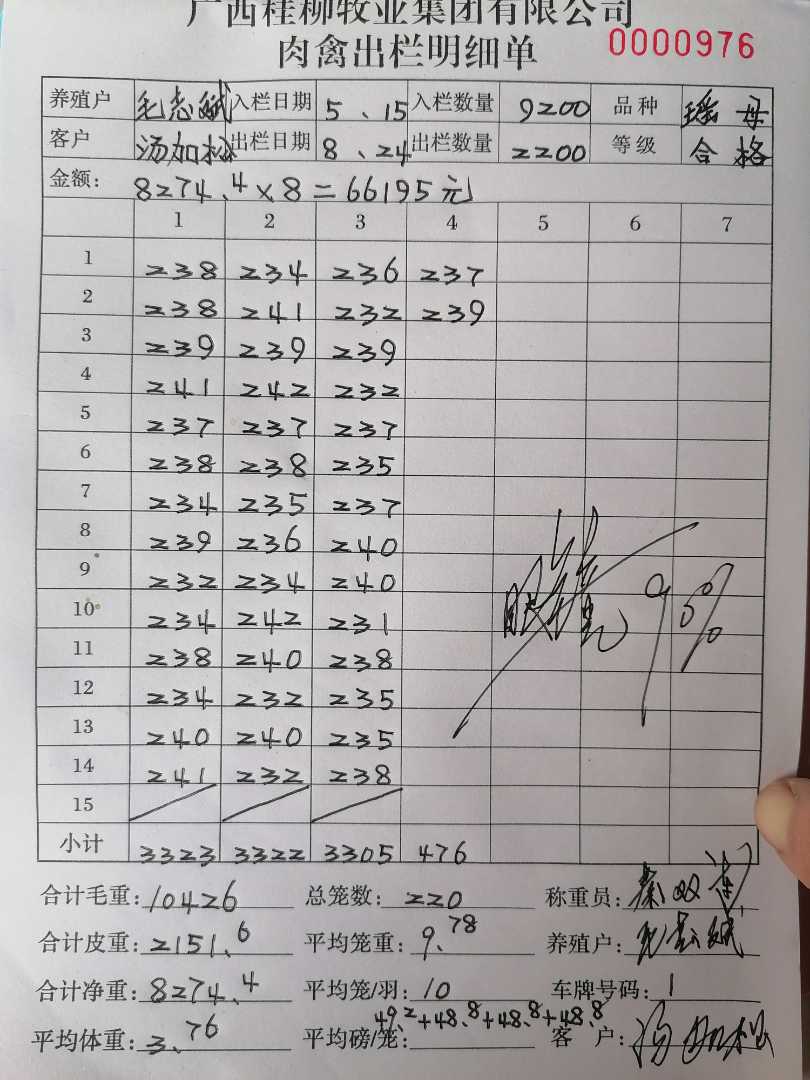 广西桂柳牧业集团有限公司
肉禽出栏明细单 0000976
养殖户 毛志斌 入栏日期 5、15 入栏数量 9200 品种 瑶母
客户 汤加松 出栏日期 8、24 出栏数量 2200 等级 合格
金额: 8274.4×8=66195元
1 2 3 4 5 6 7
1 238 234 236 237
2 238 241 232 239
3 239 239 239
4 241 242 232
5 237 237 237
6 238 238 235
7 234 235 237
8 239 236 240
9 232 234 240
10 234 242 231
11 238 240 238
12 234 232 235
13 240 240 235
14 241 232 238
15
小计 3323 3322 3305 476
95%
合计毛重: 10426 总笼数: 220 称重员:
合计皮重: 2151.6 平均笼重: 9.78 养殖户: 毛志斌
合计净重: 8274.4 平均笼/羽: 10 车牌号码: 1
平均体重: 3.76 平均磅/笼: 49.2+48.8+48.8+48.8 客户: 汤加松